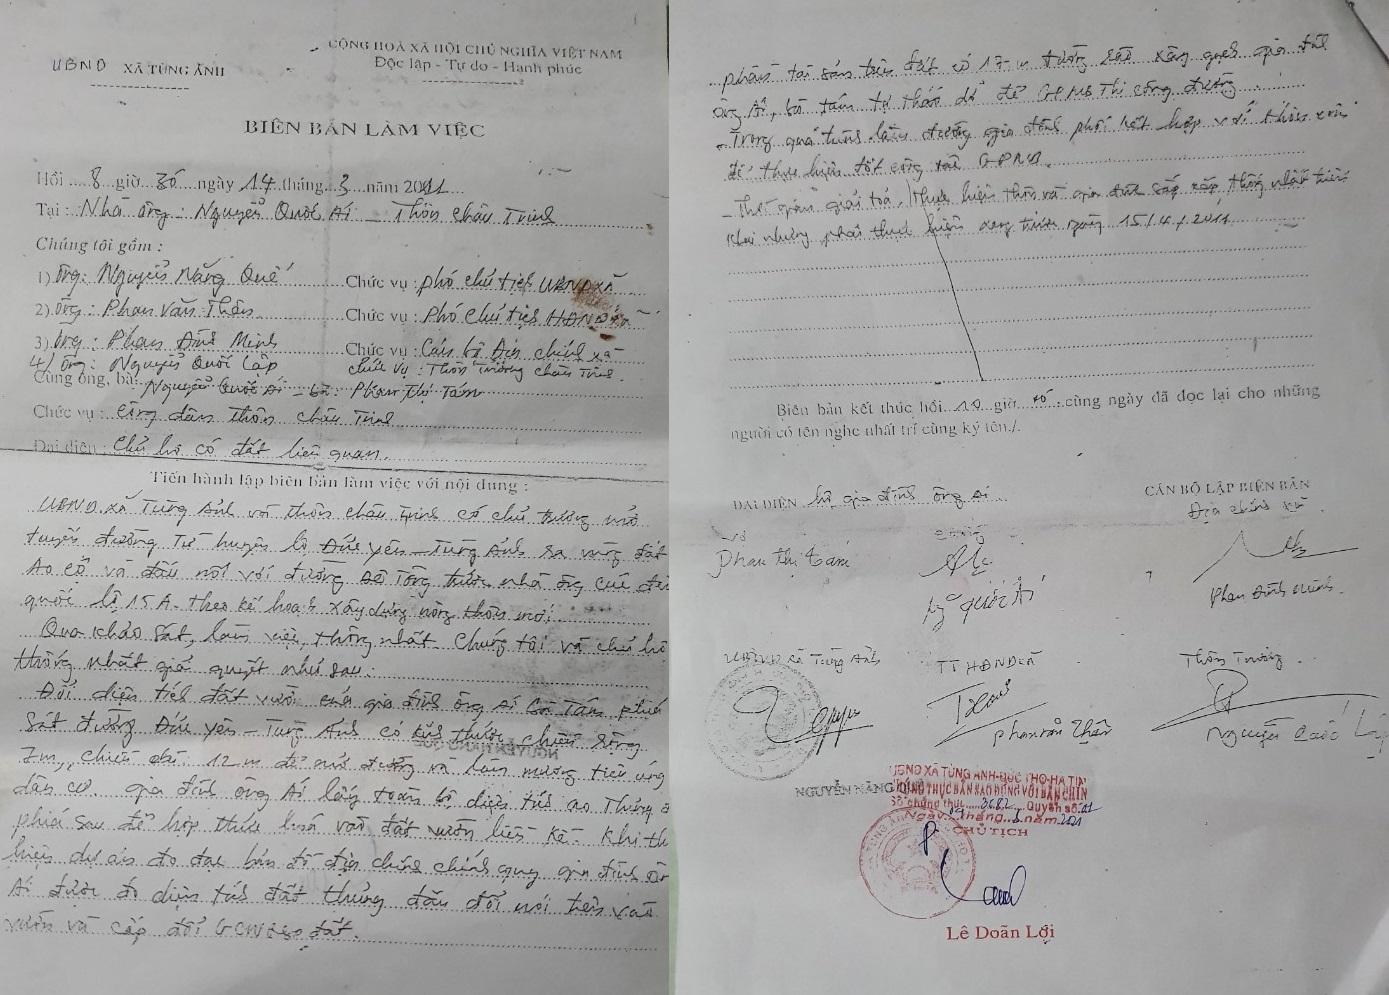 UBND XÃ TÙNG ẢNH
CỘNG HOÀ XÃ HỘI CHỦ NGHĨA VIỆT NAM
Độc lập - Tự do - Hạnh phúc
BIÊN BẢN LÀM VIỆC
Hồi 8 giờ 30 ngày 14 tháng 3 năm 2011
Tại : Nhà ông : Nguyễn Quốc Ái - Thôn Châu Trinh
Chúng tôi gồm :
1) Ông: Nguyễn Năng Quế Chức vụ : Phó chủ tịch UBND xã
2) Ông : Phan Văn Thân Chức vụ : Phó chủ tịch HĐND xã
3) Ông : Phan Đình Minh Chức vụ : Cán bộ Địa chính xã
4/ Ông : Nguyễn Quốc Lập chức vụ : Thôn Trưởng Châu Trinh.
Cùng ông, bà: Nguyễn Quốc Ái - bà: Phan Thị Tám
Chức vụ : Công dân thôn Châu Trinh
Đại diện : Chủ hộ có đất liên quan.
Tiến hành lập biên bản làm việc với nội dung :
UBND xã Tùng Ảnh và thôn Châu Trinh có chủ trương mở
tuyến đường Từ huyện lộ Đức Yên - Tùng Ảnh ra vùng đất
Ao cộ và đấu nối với đường trước nhà ông đi
quốc lộ 15A. theo kế hoạch xây dựng nông thôn mới.
Qua khảo sát, làm việc, thống nhất Chúng tôi và chủ hộ
thống nhất giải quyết như sau:
Đổi diện tích đất vườn của gia đình ông Ái bà Tám phía
sát đường Đức Yên - Tùng Ảnh có kích thước chiều rộng
7m, chiều dài 12m để mở đường và làm mương tiêu úng
dân cư. gia đình ông Ái lấy toàn bộ diện tích ao Thùng
phía sau để hợp thức hoá vào đất vườn liền kề. Khi
hiện dự án đo đạc bản đồ địa chính chính quy gia đình
Ái được đo diện tích đất thùng đấu đổi nói trên vào
vườn và cấp đổi GCNQSD đất.
NGUYỄN NĂNG QUẾ
phần tài sản trên đất có 17m tường rào xây gạch gia đình
ông Ái, bà Tám tự tháo dỡ để GPMB Thi công đường.
- Trong quá trình làm đường gia đình phối kết hợp với thôn xóm
để thực hiện tốt công tác GPMB.
- Thời gian giải toả, thực hiện thôn và gia đình sắp xếp thống nhất triển
khai nhưng phải thực hiện xong trước ngày 15/4/2011
Biên bản kết thúc hồi 10 giờ cùng ngày đã đọc lại cho những
người có tên nghe nhất trí cùng ký tên./.
ĐẠI DIỆN hộ gia đình ông Ái
CÁN BỘ LẬP BIÊN BẢN
Địa chính xã
vợ chồng
Phan Thị Tám
Quốc Ái
Phan Đình Minh
UBND xã Tùng Ảnh TT HĐND xã Thôn Trưởng
Phan Văn Thân
Nguyễn Quốc Lập
NGUYỄN NĂNG QUẾ
UBND XÃ TÙNG ẢNH-ĐỨC THỌ-HÀ TĨNH
CHỨNG THỰC BẢN SAO ĐÚNG VỚI BẢN CHÍNH
Số chứng thực Quyển số 01
Ngày tháng năm 2021
CHỦ TỊCH
Lê Doãn Lợi